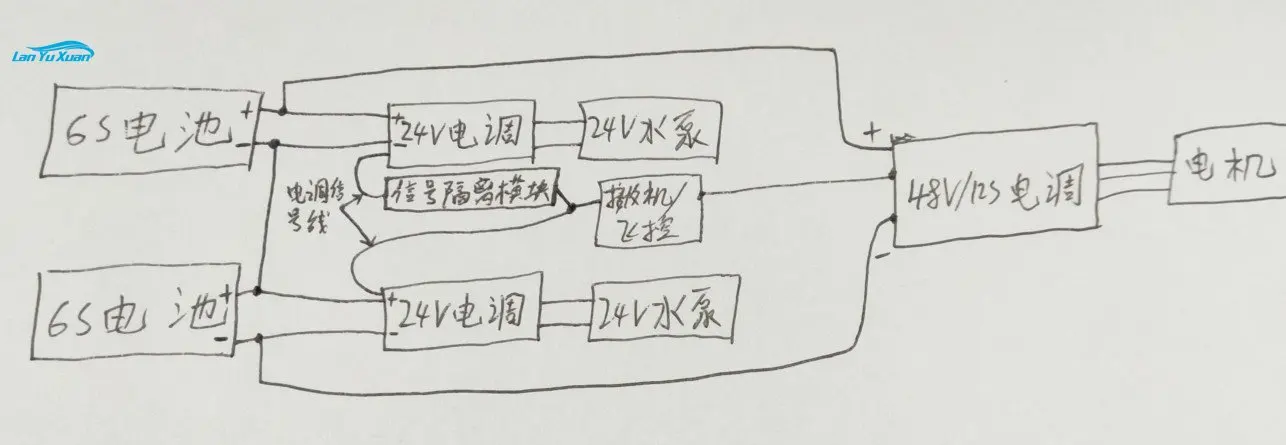 Lan Yu Xuan
6S电池
+
-
+
-
24V电调
24V水泵
电调信
号线
信号隔离模块
接收机/
飞控
+
-
48V/12S电调
电机
6S电池
+
-
+
-
24V电调
24V水泵